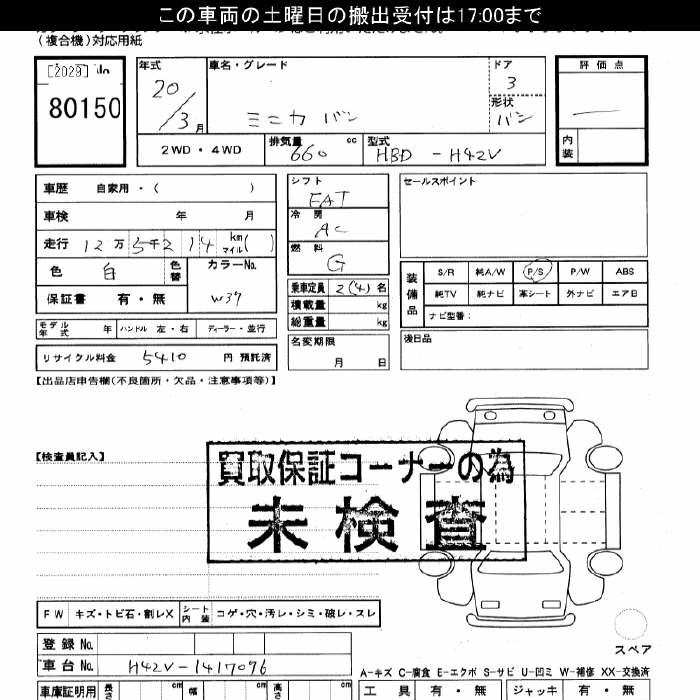 この車両の土曜日の搬出受付は17:00まで
(複合機)対応用紙
[2029] No
80150
年式 20/3月
車名・グレード ミニカ バン
ドア 3
形状 バン
評価点 —
内装
2WD・4WD
排気量 660 cc
型式 HBD - H42V
車歴 自家用・( )
車検 年 月
走行 12万5千214 km マイル( )
色 白 色替
カラーNo. W37
保証書 有・無
モデル年式 年 ハンドル 左・右 ディーラー・並行
リサイクル料金 5410 円 預託済
シフト FAT
冷房 AC
燃料 G
乗車定員 2(4) 名
積載量 kg
総重量 kg
名変期限 月 日
セールスポイント
装備品
S/R 純A/W P/S P/W ABS
純TV 純ナビ 革シート 外ナビ エアB
ナビ型番:
後日品
【出品店申告欄(不良箇所・欠品・注意事項等)】
【検査員記入】
買取保証コーナーの為
未検査
FW キズ・トビ石・割レX シート内装 コゲ・穴・汚レ・シミ・破レ・スレ
スペア
登録No.
車台No. H42V-1417096
A-キズ C-腐食 E-エクボ S-サビ U-凹ミ W-補修 XX-交換済
車庫証明用 長さ cm 幅 cm 高さ cm
工具 有・無 ジャッキ 有・無